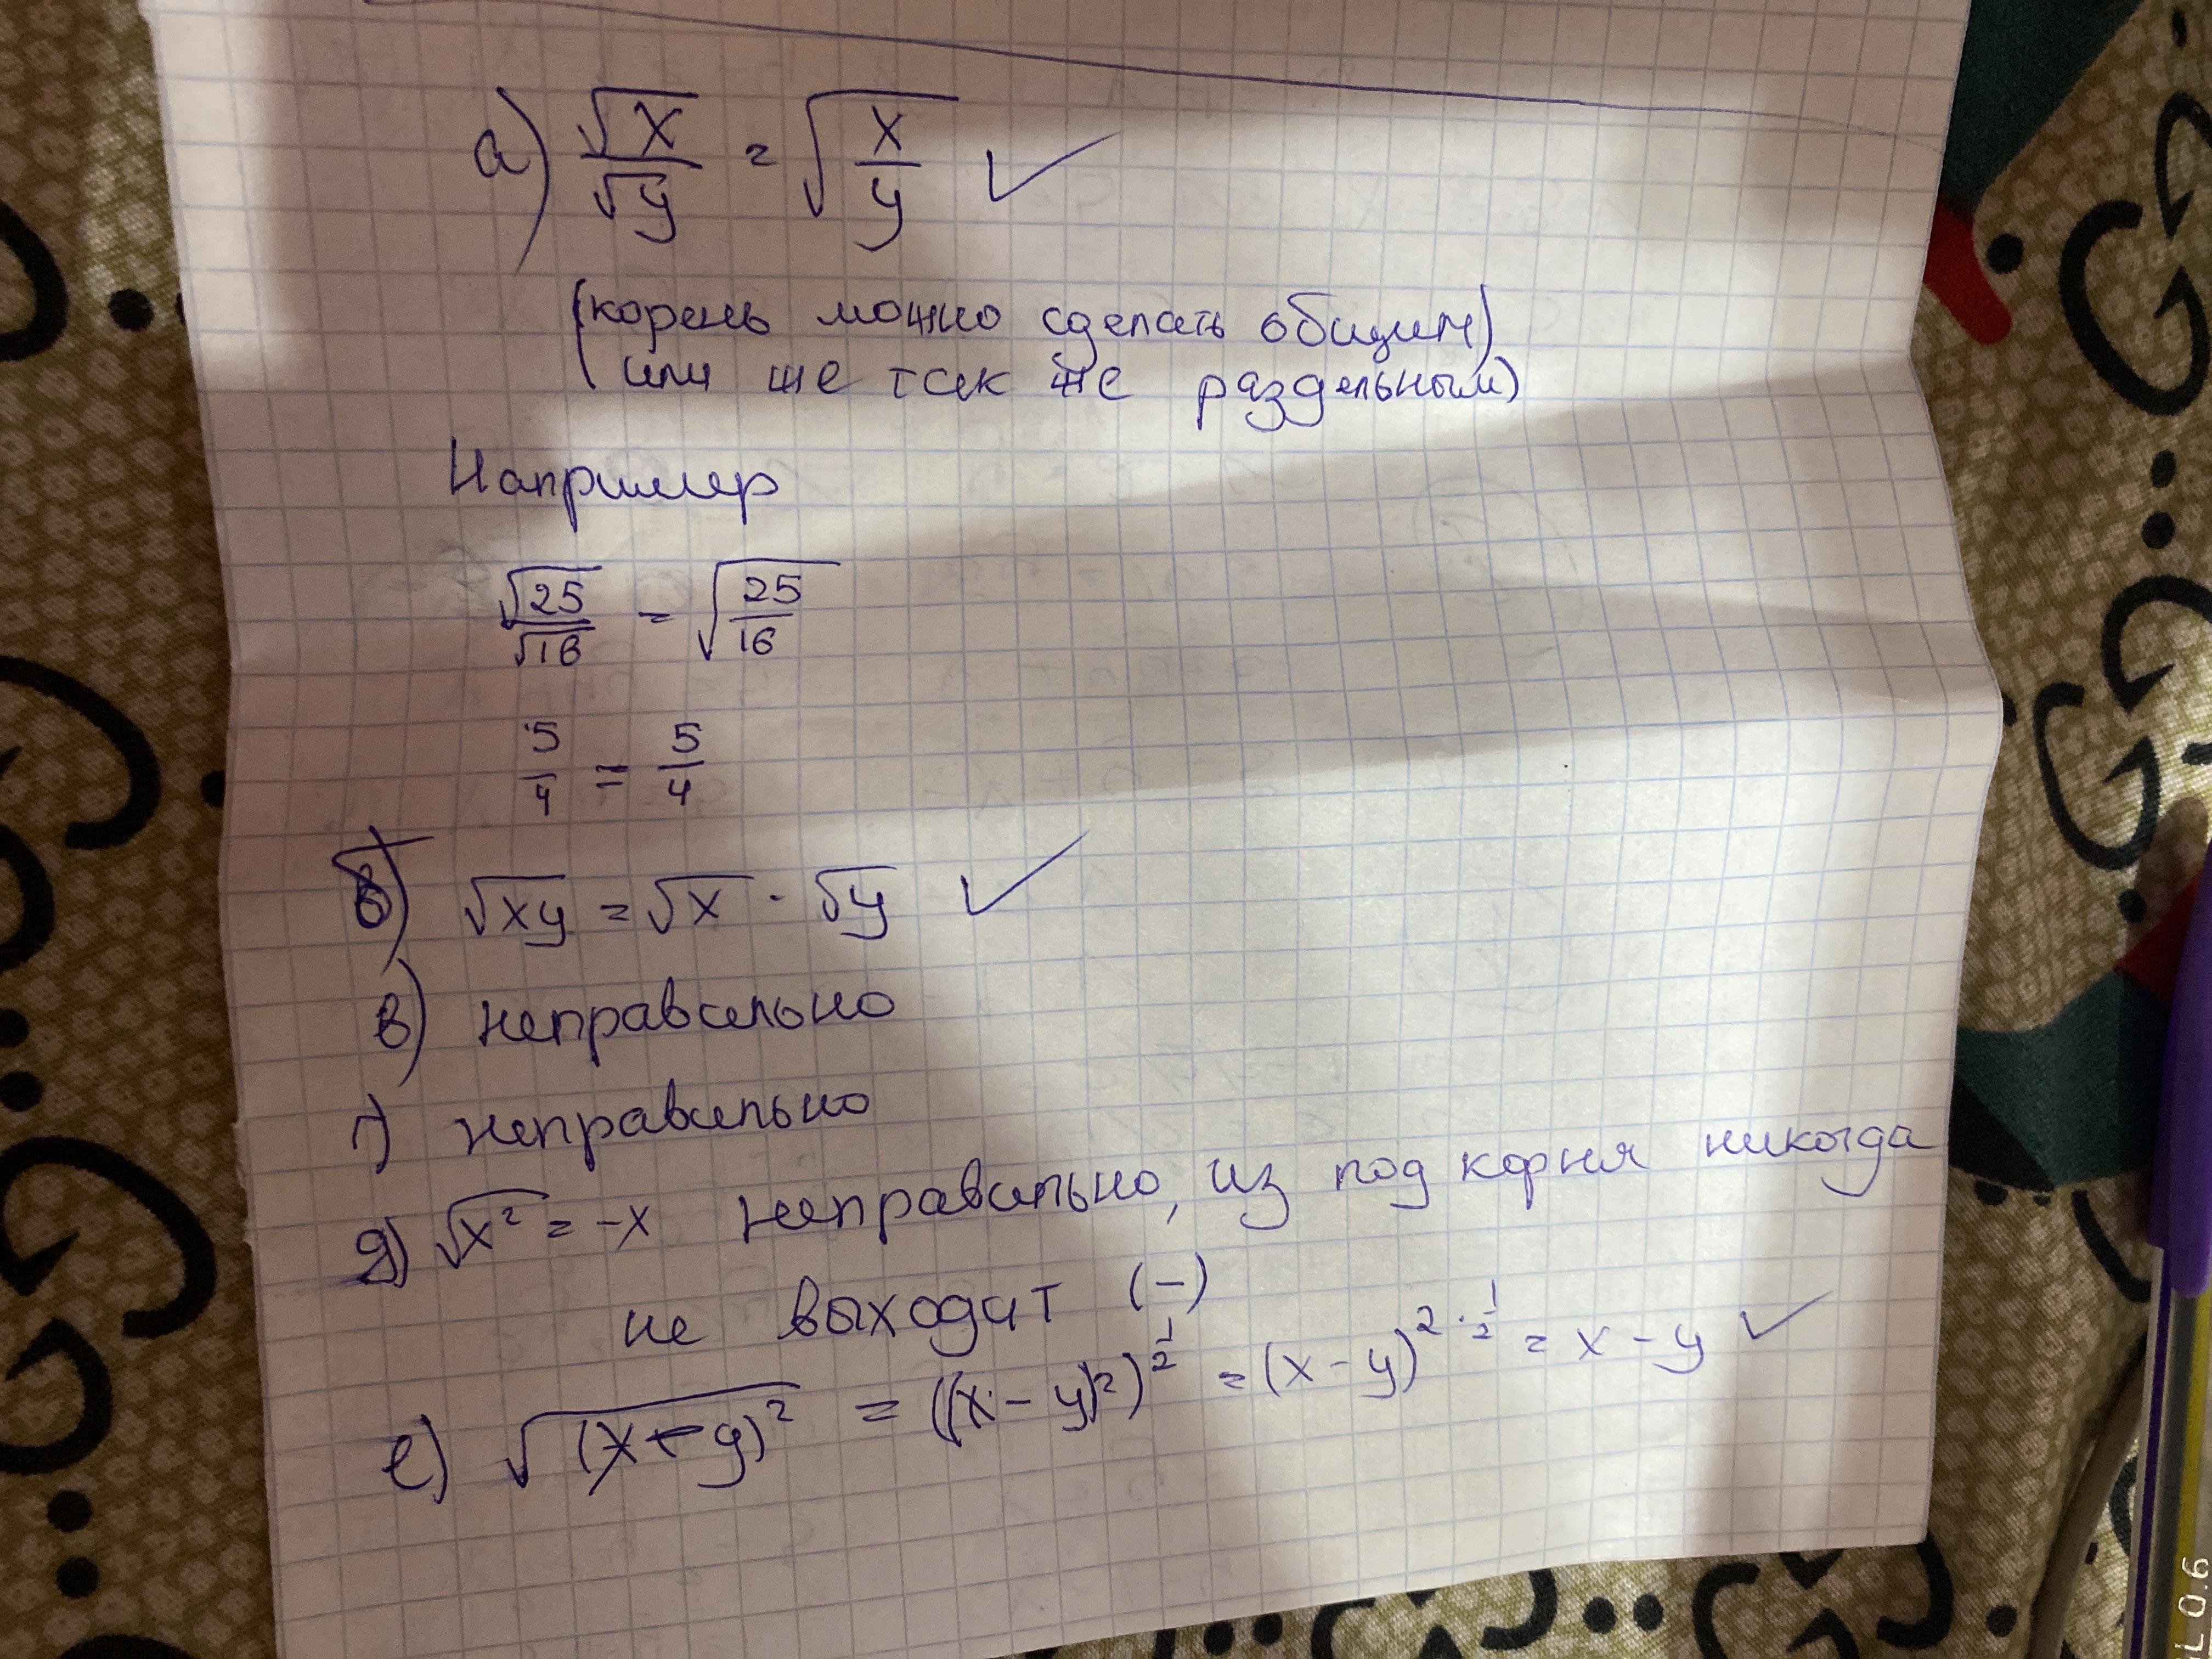 а) √x/√y = √(x/y) ✓
(корень можно сделать общим)
(или же так же раздельным)
Например
√25/√16 = √(25/16)
5/4 = 5/4
б) √xy = √x · √y ✓
в) неправильно
г) неправильно
д) √x² = -x неправильно, из под корня никогда
не выходит (-)
е) √(x-y)² = ((x-y)²)^(1/2) = (x-y)^(2·1/2) = x-y ✓
L 0.6